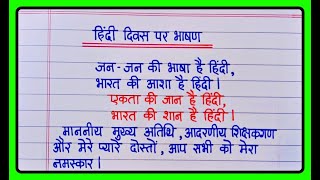 हिंदी दिवस पर भाषण
जन-जन की भाषा है हिंदी,
भारत की आशा है हिंदी।
एकता की जान है हिंदी,
भारत की शान है हिंदी।
माननीय मुख्य अतिथि, आदरणीय शिक्षकगण
और मेरे प्यारे दोस्तों, आप सभी को मेरा
नमस्कार।